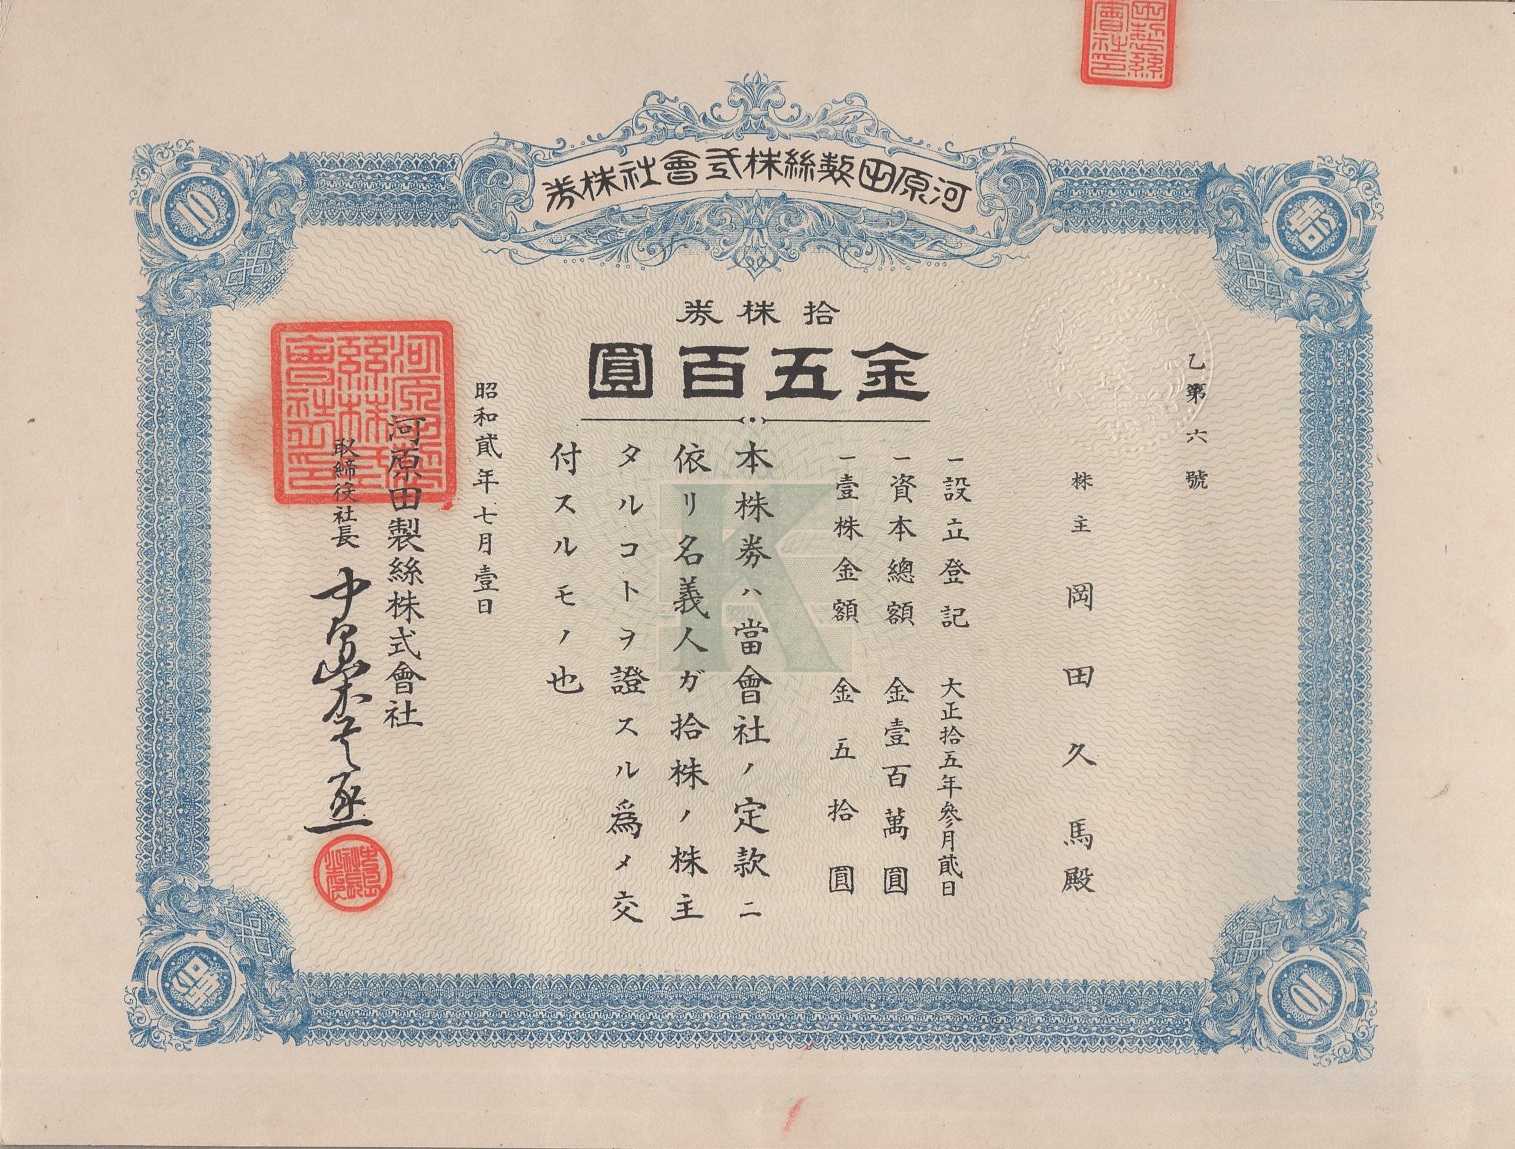 河原田製絲株式會社株券
拾株券
金五百圓
乙第六號
株主 岡田久馬殿
一設立登記 大正拾五年參月貳日
一資本總額 金壹百萬圓
一壹株金額 金五拾圓
本株券ハ當會社ノ定款ニ
依リ名義人ガ拾株ノ株主
タルコトヲ證スル爲メ交
付スルモノ也
昭和貳年七月壹日
河原田製絲株式會社
取締役社長
10
拾
拾
10
K